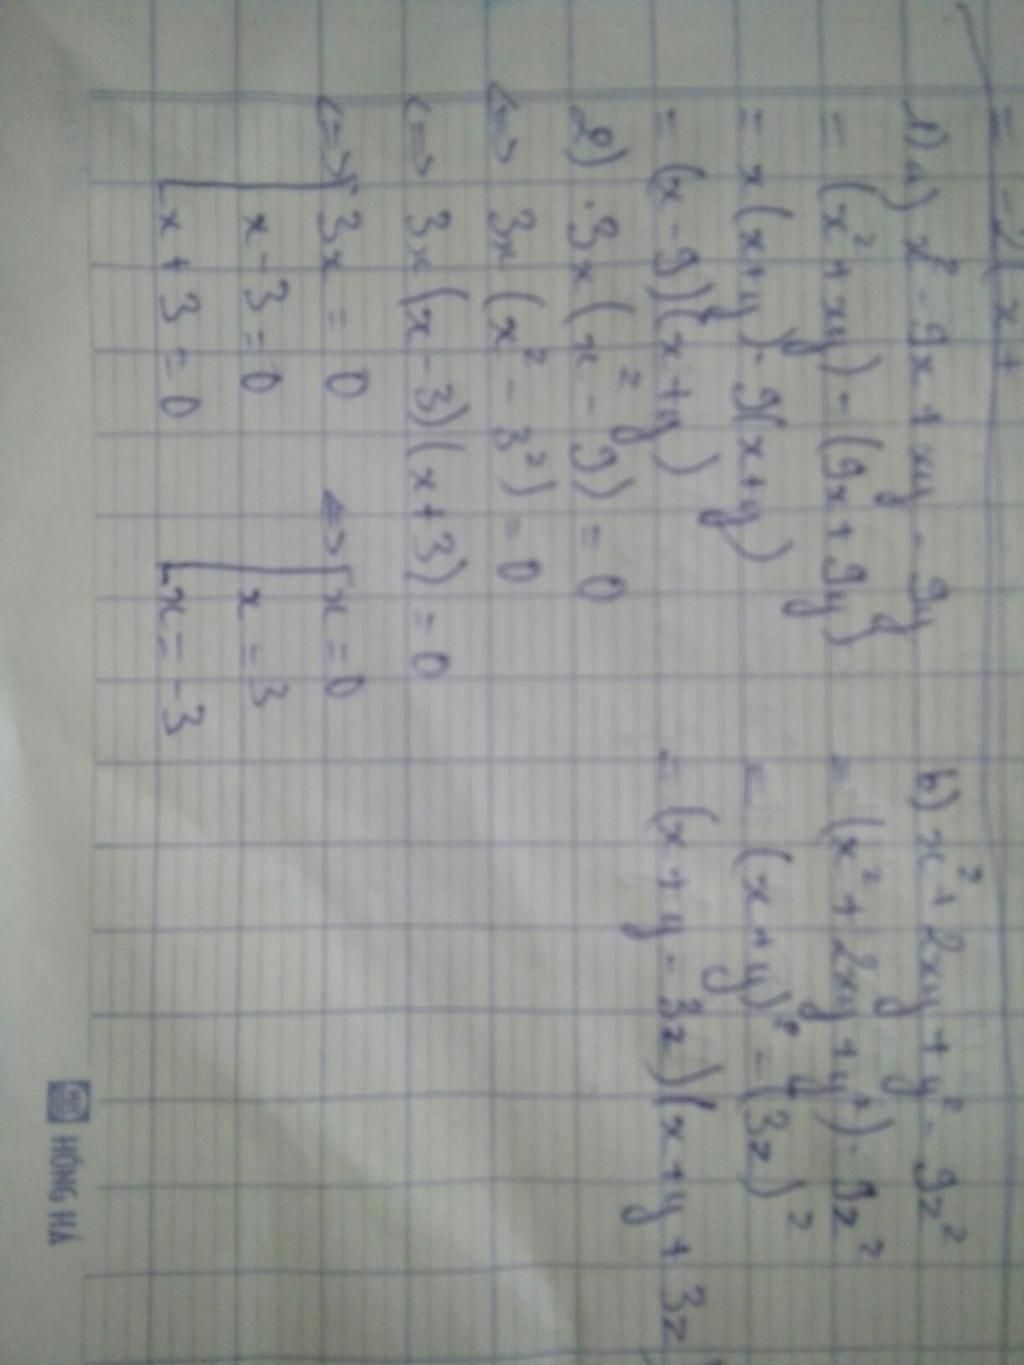 = -2(x+
1) a) x² - 9x + xy - 9y
= (x² + xy) - (9x + 9y)
= x(x+y) - 9(x+y)
= (x - 9)(x + y)
b) x² + 2xy + y² - 9z²
= (x² + 2xy + y²) - 9z²
= (x+y)² - (3z)²
= (x + y - 3z)(x + y + 3z
2) 3x(x² - 9) = 0
<=> 3x(x² - 3²) = 0
<=> 3x(x - 3)(x + 3) = 0
<=> [3x = 0 <=> [x = 0
x - 3 = 0 x = 3
x + 3 = 0 x = -3
HỒNG HÀ